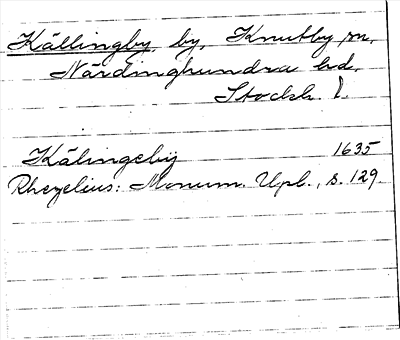 Källingby, by, Knutby sn,
Närdinghundra hd,
Stockh. l.
Kälingeby 1635
Rhezelius: Monum. Upl., s. 129.